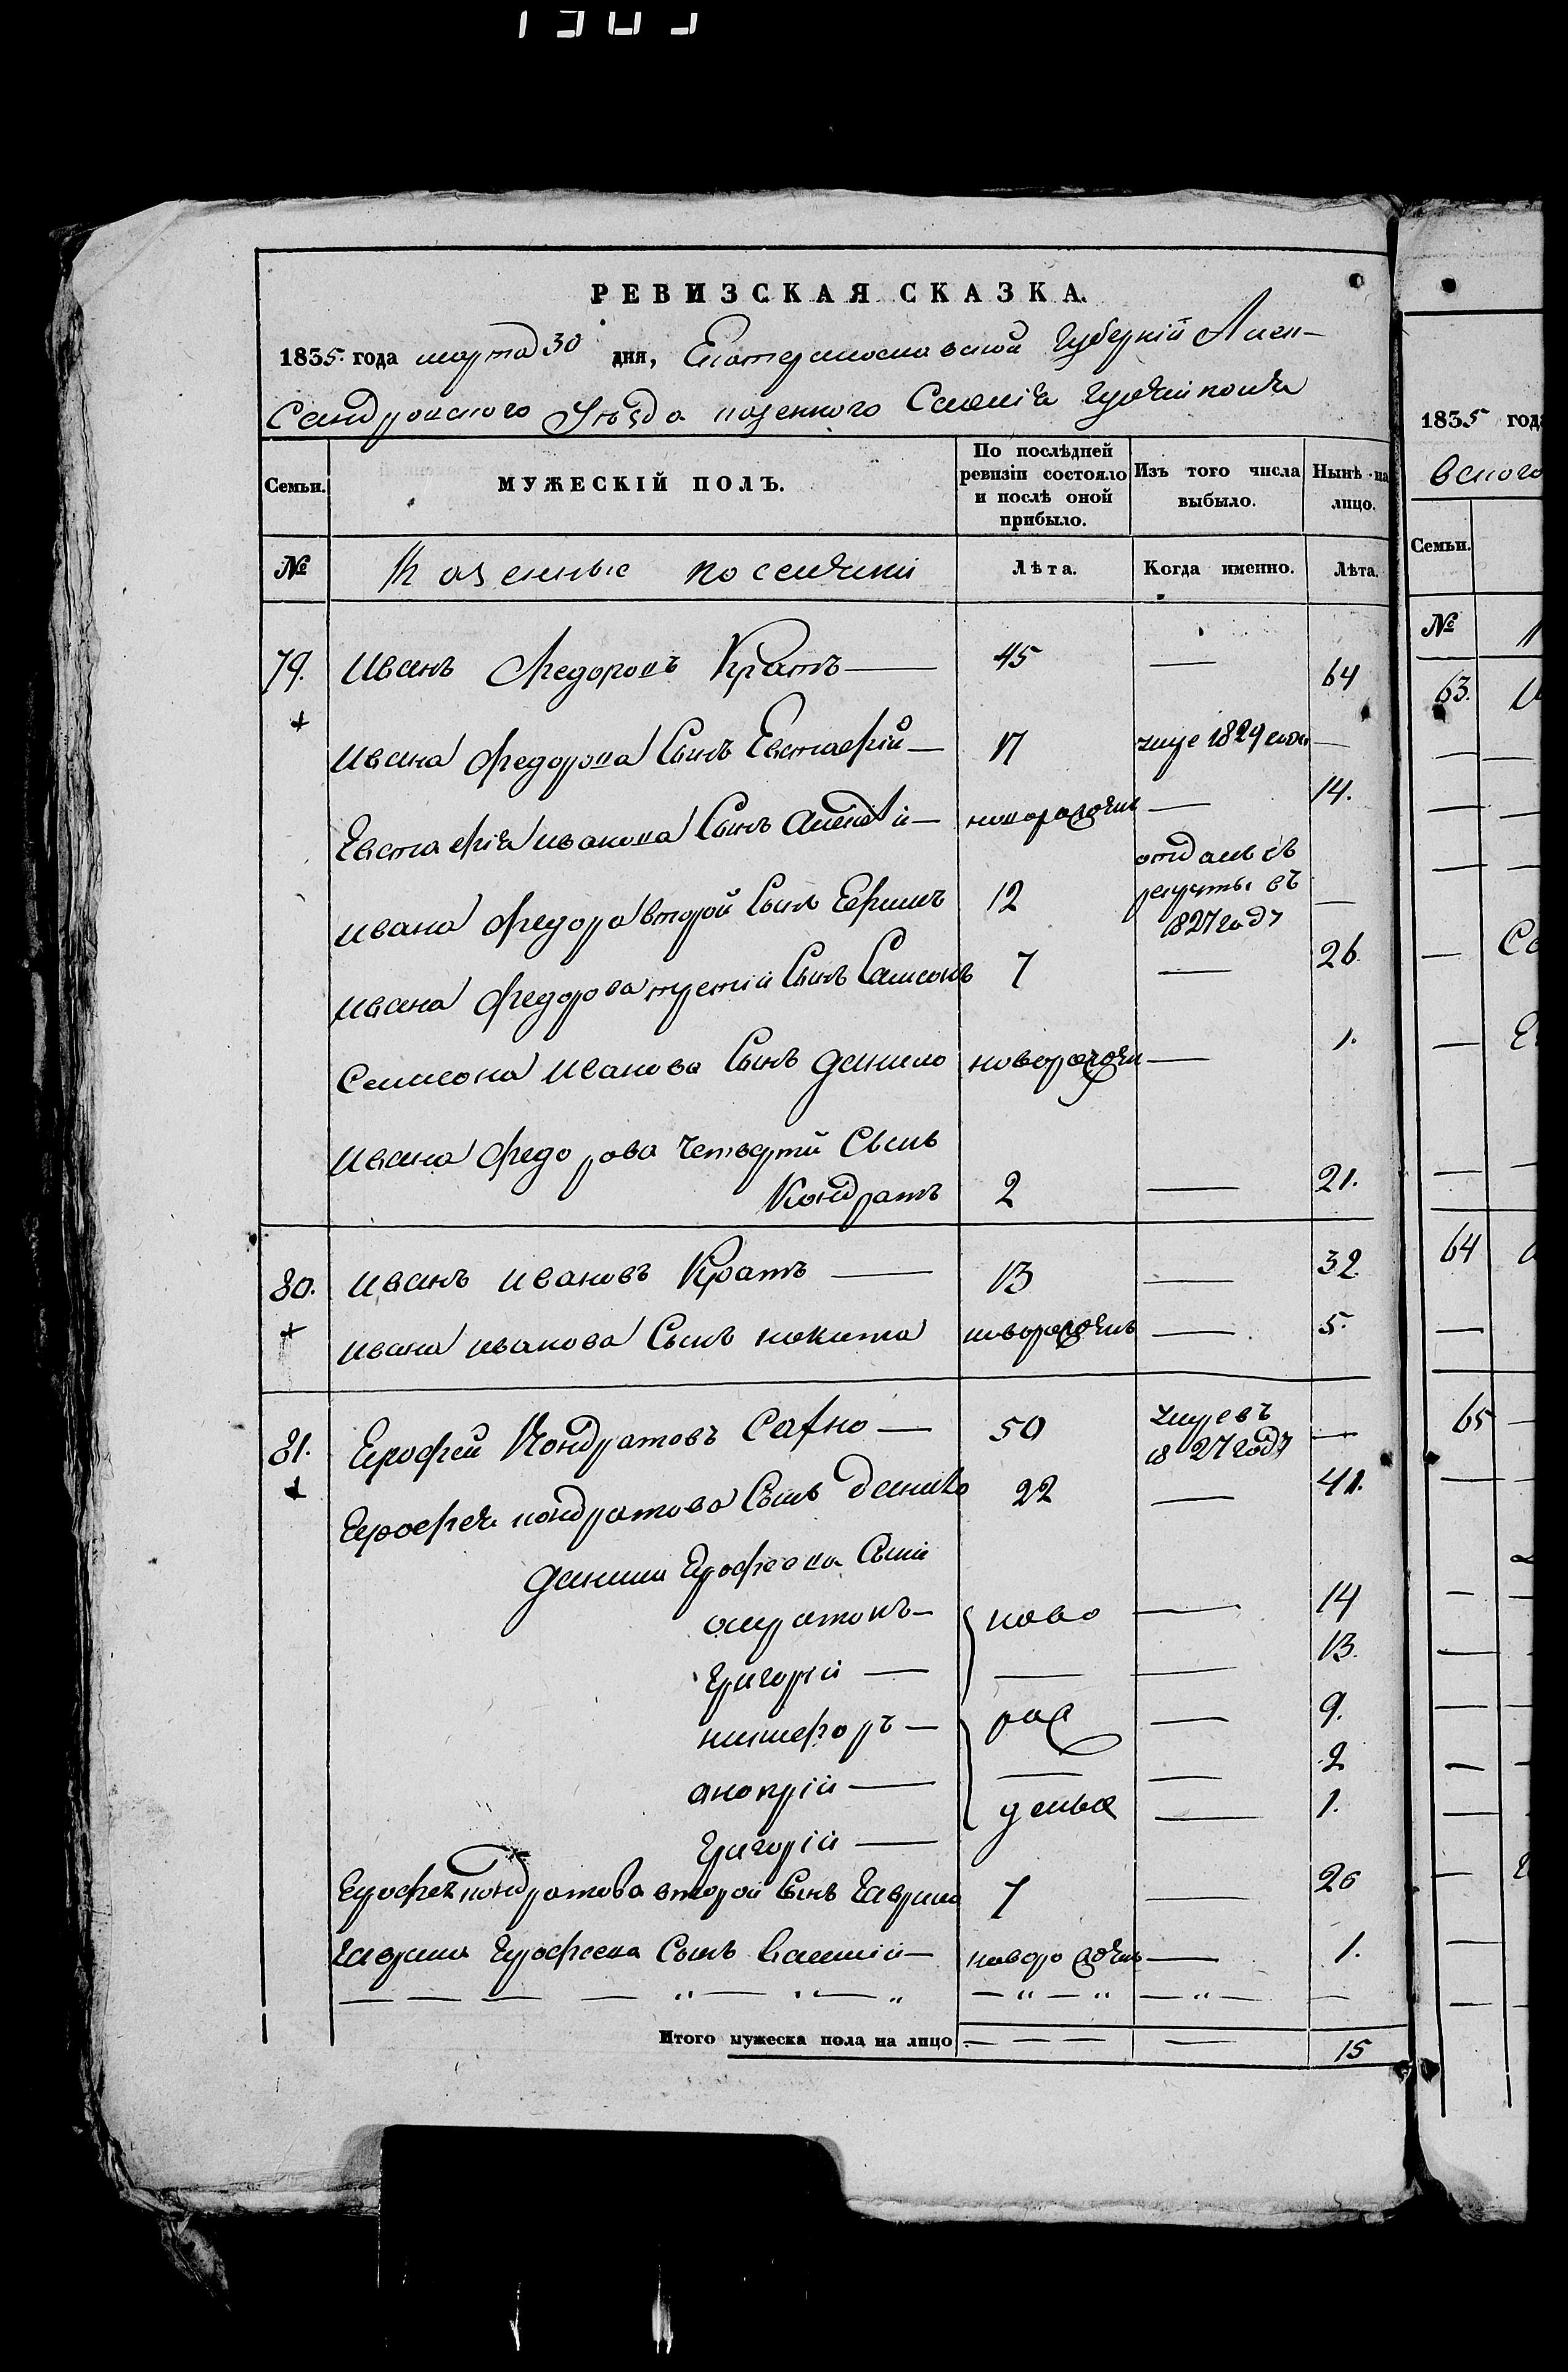 РЕВИЗСКАЯ СКАЗКА.
1835 года марта 30 дня, Екатеринославской Губерніи Алек-
Сандровского Уезда казенного Селенія Гуляйполя
Семьи. МУЖЕСКІЙ ПОЛЪ. По послѣдней ревизіи состояло и послѣ оной прибыло. Изъ того числа выбыло. Нынѣ на лицо.
№ Казенные поселяни Лѣта. Когда именно. Лѣта.
79. Иванъ Федоровъ Кратъ — 45 — 64
Ивана Федорова Сынъ Евстафій — 17 умре 1829 года —
Евстафія Иванова Сынъ Алексѣй — новорожденъ — 14.
Ивана Федорова второй Сынъ Ефимъ 12 отданъ въ рекруты въ 1827 году —
Ивана Федорова третій Сынъ Самсонъ 7 — 26
Самсона Иванова Сынъ Данило новорожден — 1.
Ивана Федорова четвертй Сынъ
Кондратъ 2 — 21.
80. Иванъ Ивановъ Кратъ — 13 — 32
Ивана Иванова Сынъ никита новорожденъ — 5.
81. Ерофей Кондратовъ Сахно — 50 умре въ 1827 году —
Ерофея кондратова Сынъ данило 22 — 41.
Данила Ерофеева Сыни
ново — 14
Григорій — — — 13.
никифоръ — рож — 9.
анопрій — — — 2
Григорій — деные — 1.
Ерофея кондратова второй Сынъ Гаврило 7 — 26
Гаврила Ерофеева Сынъ Василій — новорожденъ — 1.
Итого мужеска пола на лицо — — — — 15
1835 года
вского
Семьи.
№
63.
64
65